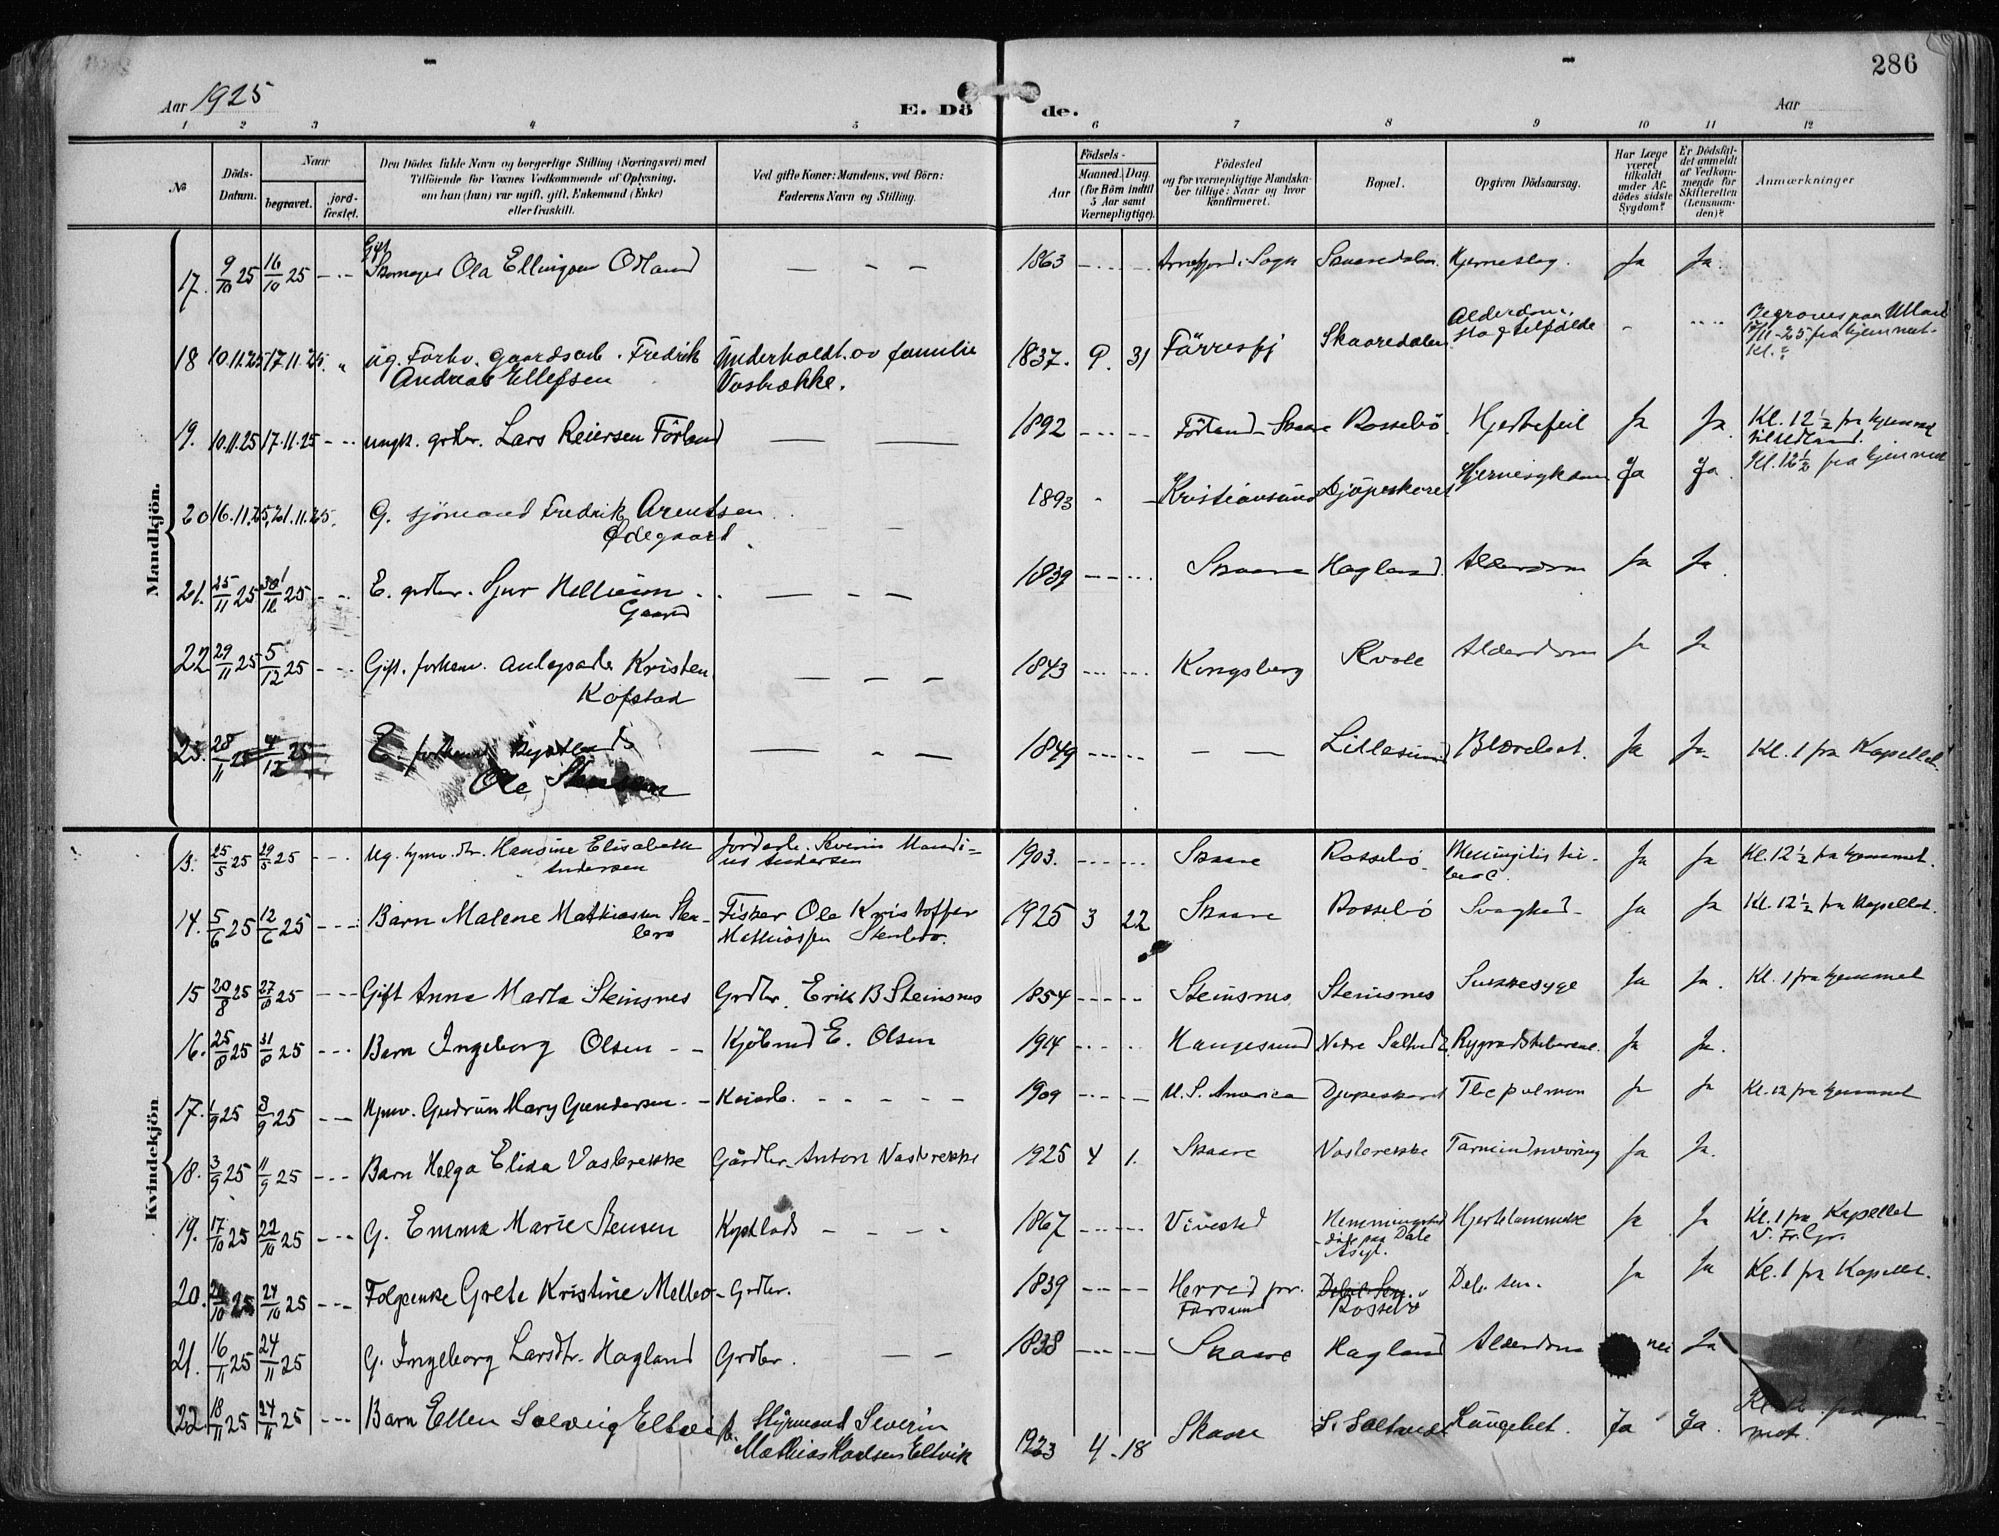 286
Aar 1925
E. Dö
de.
Aar
1 2 3 4 5 6 7 8 9 10 11 12
No
Döds-
Datum.
Naar
begravet.
jord-
fæstet.
Den Dödes fulde Navn og borgerlige Stilling (Næringsvei) med
Tilföiende for Voxnes Vedkommende af Oplysning,
om han (hun) var ugift, gift, Enkemand (Enke)
eller fraskilt.
Ved gifte Koner: Mandens, ved Börn:
Faderens Navn og Stilling.
Födsels-
Aar
Maaned. Dag
(for Börn indtil
5 Aar samt
Værnepligtige).
Födested
og for værnepligtige Mandska-
ber tillige: Naar og hvor
konfirmeret.
Bopæl.
Opgiven Dödsaarsag.
Har Læge
været
tilkaldt
under Af-
dödes sidste
Sygdom?
Er Dödsfal-
det anmeldt
af Vedkom-
mende for
Skifteretten
(Lensman-
den)?
Anmærkninger
Mandkjön.
17. 9/10 25 16/10 25 Gift Skomager Ola Ellingsen Odland 1863 Arnefjord i Sogn Skaaredalen. Hjerneslag. Ja Ja.
18 10.11.25 17.11.25. ug. Forhv. gaardsarb. Fredrik
Andreas Ellefsen
Underholdt. av familie
Vasbrække.
1837. 9. 31 Förresfj Skaaredalen Alderdom,
17/11-25 fra hjemmet.
Kl. ?
19. 10.11.25 17.11.25 ungk. grdbr. Lars Reiersen Förland 1892 Förland Skaare Rossebö. Hjertefeil Ja Ja. Kl. 12 1/2 fra hjemmet
20 16.11.25, 21.11.25. G. sjömand Fredrik Arentsen
Ødegaard
1893 Kristiansund Djöpeskaret Hjernesykdom Ja Ja. Kl. 12 1/2 fra hjemmet
21. 25/11 25 25 E. grdbr. Sjur
Gaard
1839 Skaare Hagland. Alderdom Ja Ja.
22 29/11 25 5/12 25 Gift. forhenv. Kristen
Kofstad
1843 Kongsberg Kvale Alderdom Ja Ja
23. 28/11 25 4/12 25 E. forhenv
Ole
1849 Lillesund Blærebet. Ja Ja. Kl. 1 fra Kapellet.
Kvindekjön
13. 25/5 25 29/5 25 Ug. hjmv. dtr. Hansine Elisabeth
Andersen
Jordarb. Severin Mandi-
us Andersen
1903. Skaare Rossebö. Meningitis tu-
berc.
Ja Ja Kl. 12 1/2 fra hjemmet.
14. 5/6 25 12/6 25 Barn Malene Mathiassen Sten-
bero
Fisker Ole Kristoffer
Mathiassen Stenbero.
1925 3 22 Skaare Rossebö Svaghed Ja Ja Kl. 12 1/2 fra Kapellet.
15 20/8 25 27/8 25 Gift Anna Marta Steinsnes Grdbr. Erik B Steinsnes 1854 Steinsnes. Steinsnes Sukkersyge Ja Ja. Kl. 1 fra hjemmet
16. 25/8 25 31/8 25 Barn Ingeborg Olsen Kjöbmd E. Olsen 1914 Haugesund Nedre Saltvedt Rygradstuberkul. Ja Ja.
17. 1/9 25 8/9 25 Hjmv. Gudrun Mary Gundersen Kaiarb. 1909 U. S. America Djupeskaret Tbc pulmon Ja Ja Kl. 12 fra hjemmet
18. 3/9 25 11/9 25 Barn Helga Elida Vasbrekke Gårdbr. Anton Vasbrekke 1925 4 1. Skaare Vasbrekke Tarmindsnöring Ja Ja.
19. 17/10 25 22/10 25 G. Emma Marie Stensen Kystlods 1867 Vivestad Hemmingstad
död paa Dale
Asyl.
Hjertelammelse Ja Ja Kl. 1 fra Kapellet
V. Fr. Gr.
20. 25 24/10 25 Folgeenke Grete Kristine Grdbr. 1839 Herred pr.
Farsund
Debil. Sen.
Rossebö
Deb. sen. Ja Ja Kl. 1 fra Kapellet.
21. 16/11 25 24/11 25 G. Ingeborg Larsdtr. Hagland Grdbr. 1838 Skaare Hagland Alderdom nei Ja
22. 18/11 25 24/11 25 Barn Ellen Solveig Eltvik Styrmand Severin
Mathias Karlsen Eltvik
1923 4 18 Skaare S. Saltvedt Lungebet. Ja Ja.